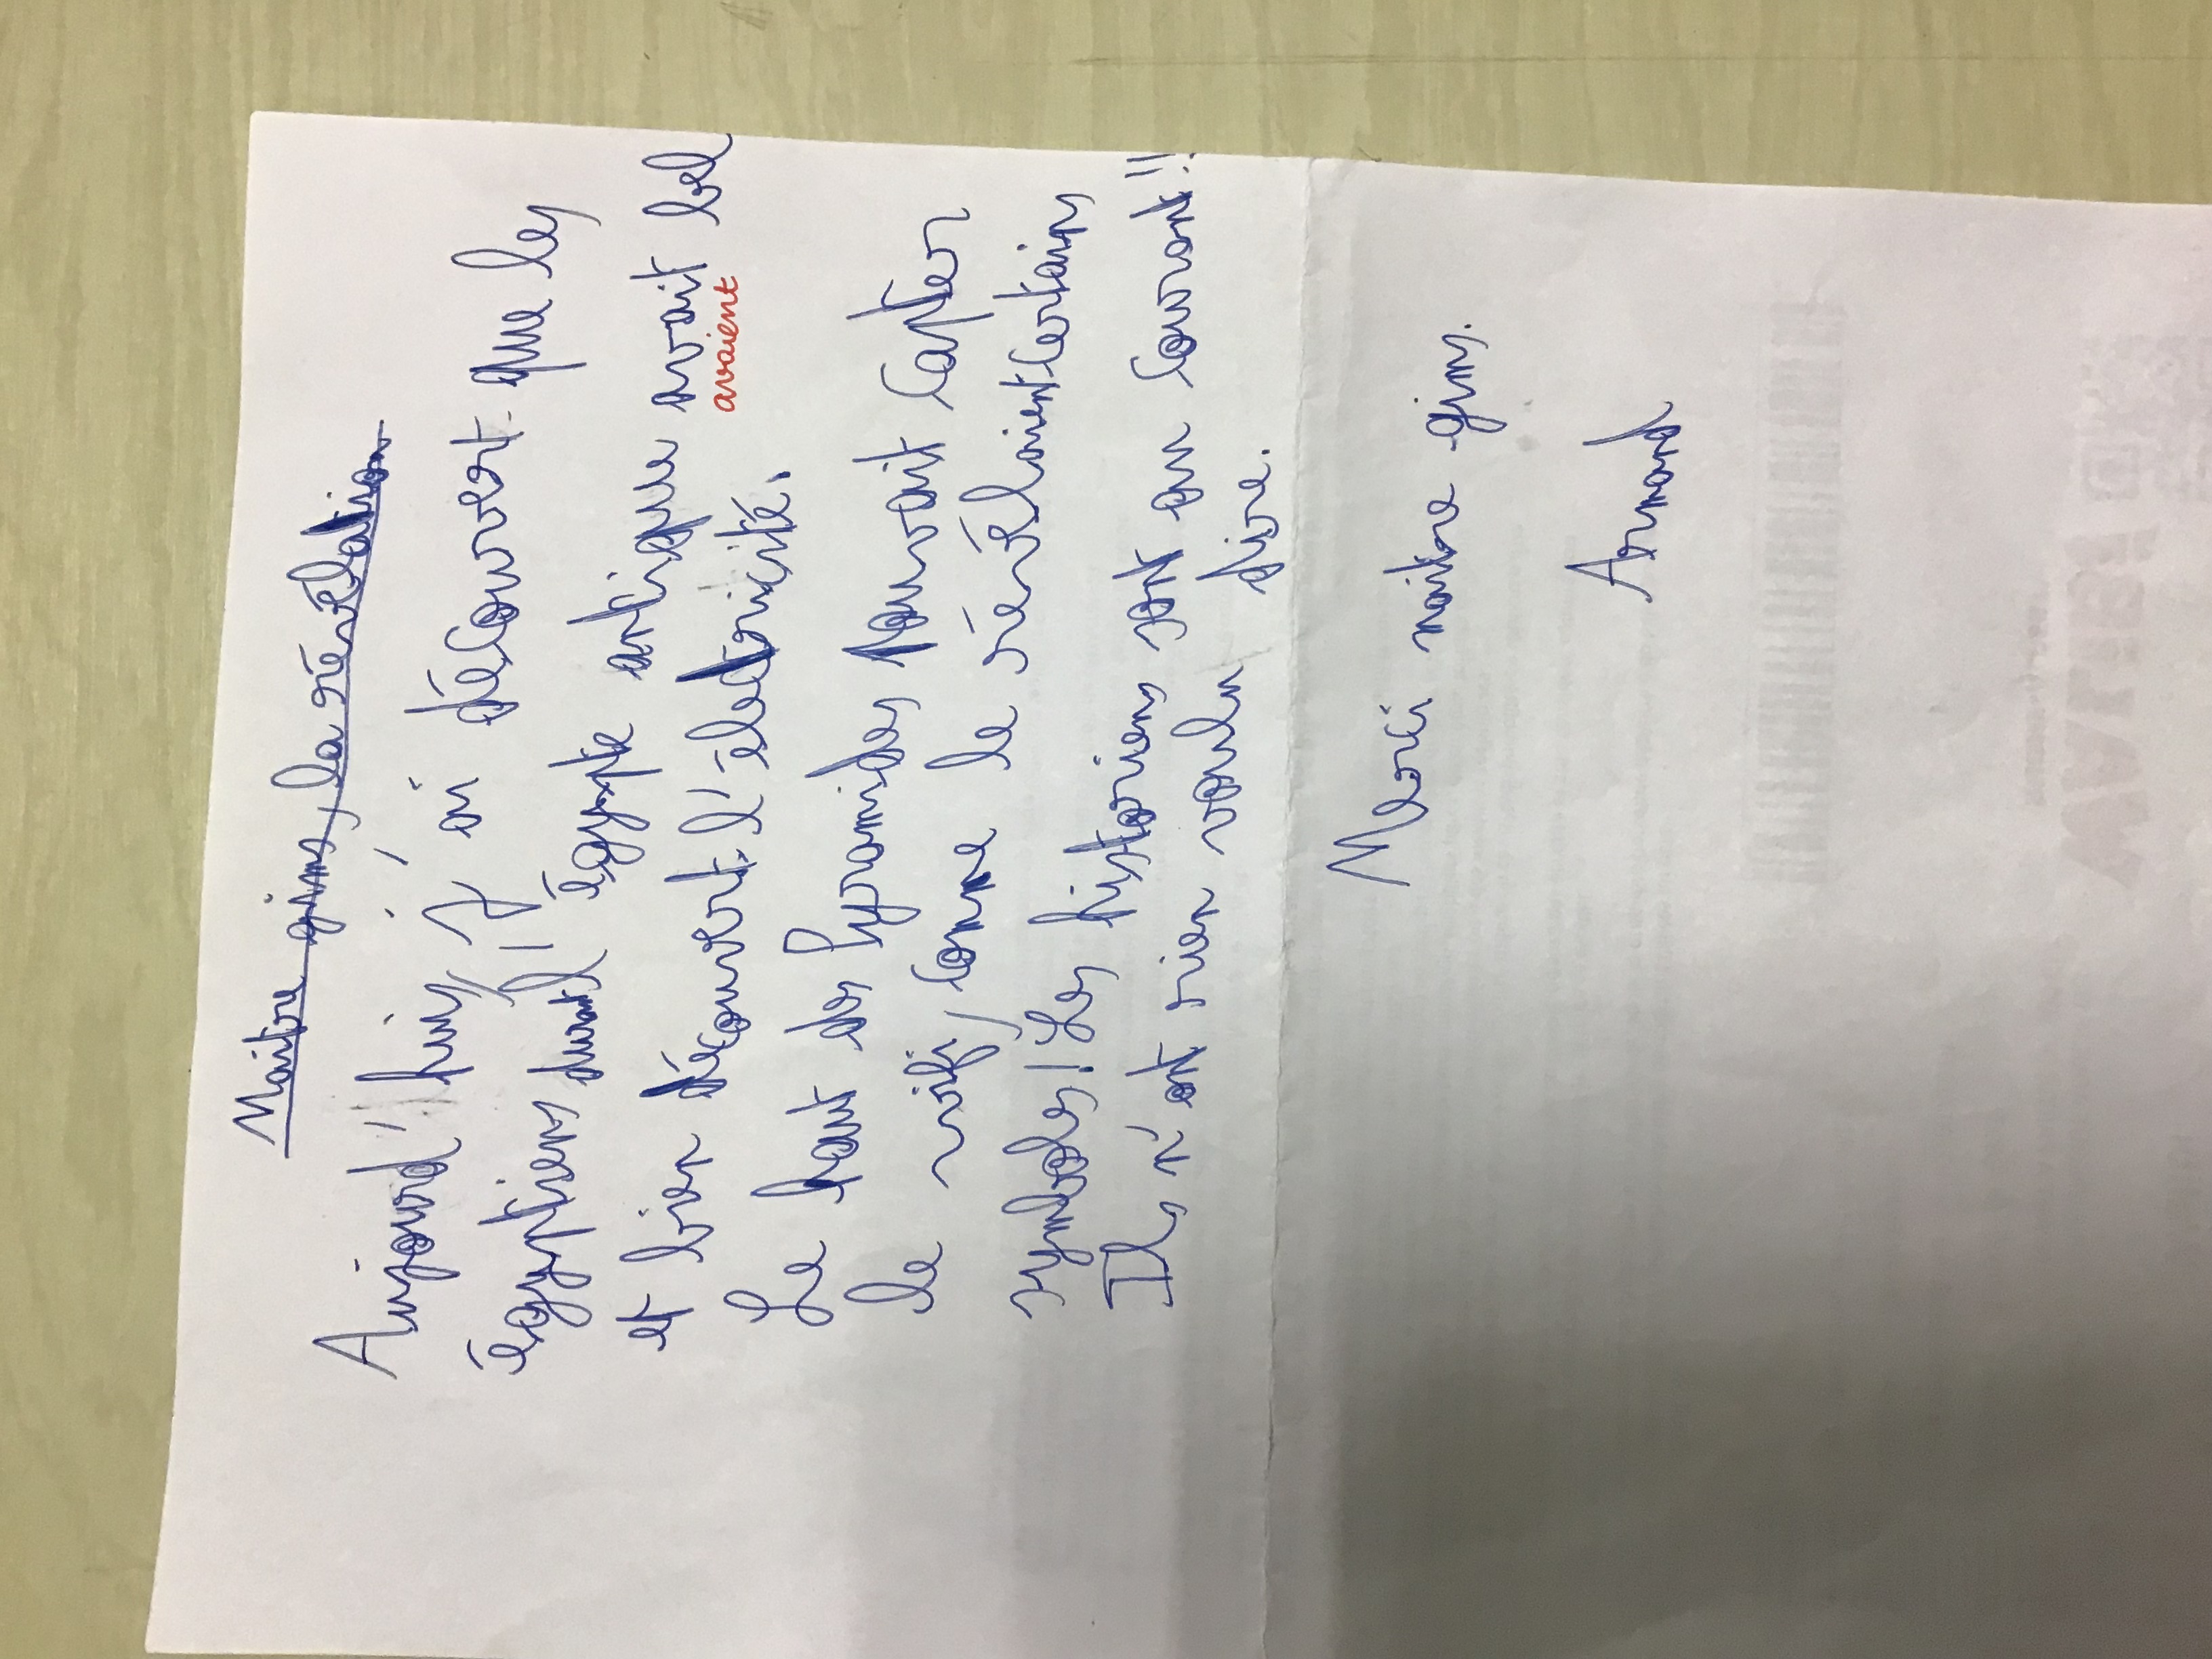 Maitre gims, la révélation
Aujourd'hui, j'ai découvert que les
égyptiens durant l'égypte antique avait bel
avaient
et bien découvert l'électricité.
Le haut des Pyramides pouvait capter
le wifi, comme le révélaient certains
symboles! Les historiens sont au courant!!
Ils n'ont rien voulu dire.
Merci maitre gims.
Armand